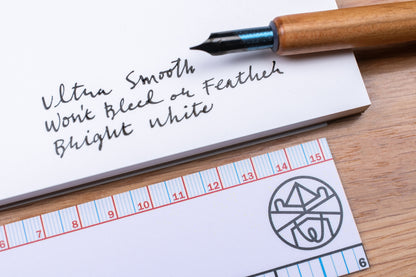 Ultra Smooth
Won't Bleed or Feather
Bright White
6 7 8 9 10 11 12 13 14 15
6